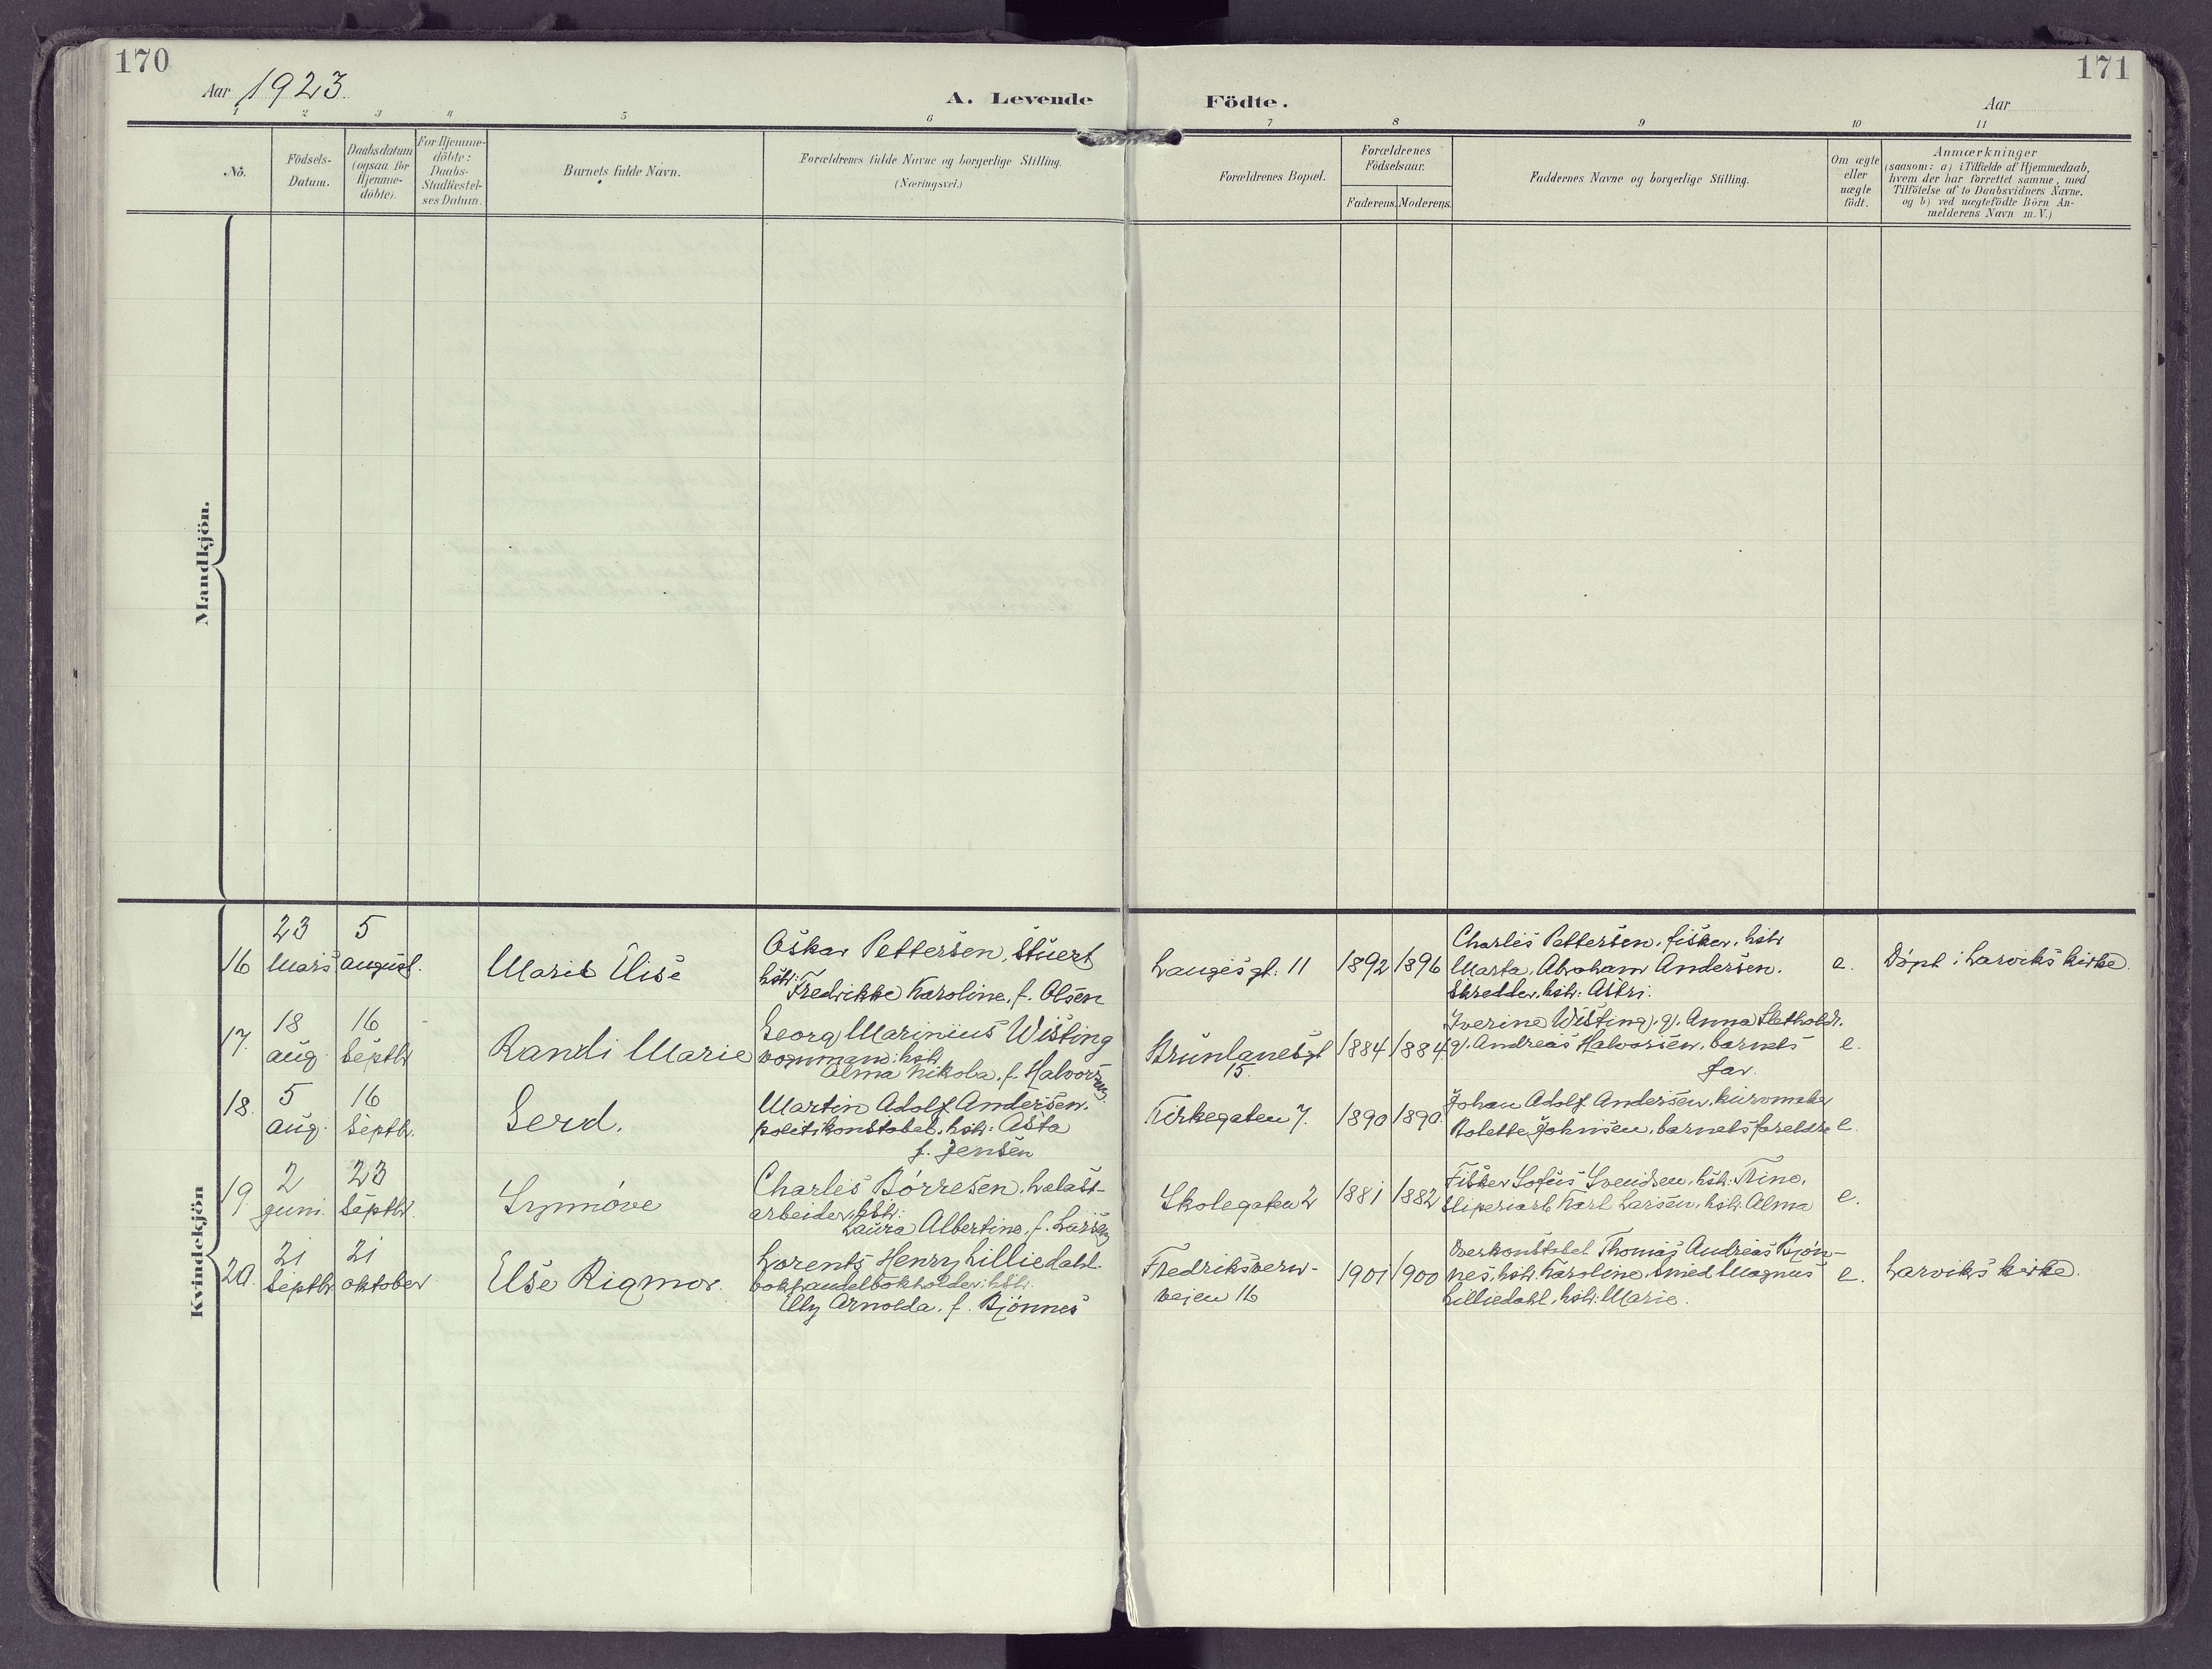 170
171
Aar 1923.
A. Levende Födte.
Aar
1 2 3 4 5 6 7 8 9 10 11
No.
Födsels-
Datum.
Daabsdatum
(ogsaa for
Hjemme-
döbte).
For Hjemme-
döbte:
Daabs-
Stadfæstel-
ses Datum.
Barnets fulde Navn.
Forældrenes fulde Navne og borgerlige Stilling.
(Næringsvei.)
Forældrenes Bopæl.
Forældrenes
Födselsaar.
Faderens.
Moderens.
Faddernes Navne og borgerlige Stilling.
Om ægte
eller
uægte
födt.
Anmærkninger
(saasom: a) i Tilfælde af Hjemmedaab,
hvem der har forrettet samme, med
Tilföielse af to Daabsvidners Navne.
og b) ved uægtefödte Börn An-
melderens Navn m.V.)
Mandkjön.
Kvindekjön
16
23
mars
5
august.
Marit Elise
Oskar Pettersen, stuert
hstr:
Fredrikke Karoline, f. Olsen
Laugesgt. 11
1892
1896
Charles Pettersen, fisker, hstr
Marta, Abraham Andersen.
Skredder, hstr: Astri.
e.
Døpt i Larviks kirke.
17.
18
aug.
16
septbr
Randi Marie
Georg Marinius Wisting
vognmand: hstr
Alma Nikola, f. Halvorsen
Brunlanesgt
15.
1884
1884
Iverine Wisting, g. Anna Sletholdt.
g. Andreas Halvorsen, barnets
far.
e.
18.
5
aug.
16
septbr.
Gerd.
Martin Adolf Andersen.
politikonstabel, hstr: Asta
f. Jensen
Kirkegaten 7.
1890
1890.
Johan Adolf Andersen, kurvmaker
Bolette Johnsen, barnets foreldre
e.
19
2
juni.
23
septbr.
Synnøve
Charles Børresen, ballast-
arbeider, hstr:
Laura Albertine, f. Larsen
Skolegaten 2
1881
1882
Fisker Sofus Svendsen, hstr. Trine,
sliperiarb Karl Larsen, hstr. Alma
e.
20.
21
septbr
21
oktober
Else Rigmor.
Lorents Henry Lilliedahl
bokhandelbokholder: hstr:
Elly Arnolda, f. Bjønnes
Fredriksvern-
veien 16
1901
1900
Overkonstabel Thomas Andreas Bjøn-
nes, hstr. Karoline, smed Magnus
Lilliedahl, hstr: Marie.
e.
Larviks kirke.